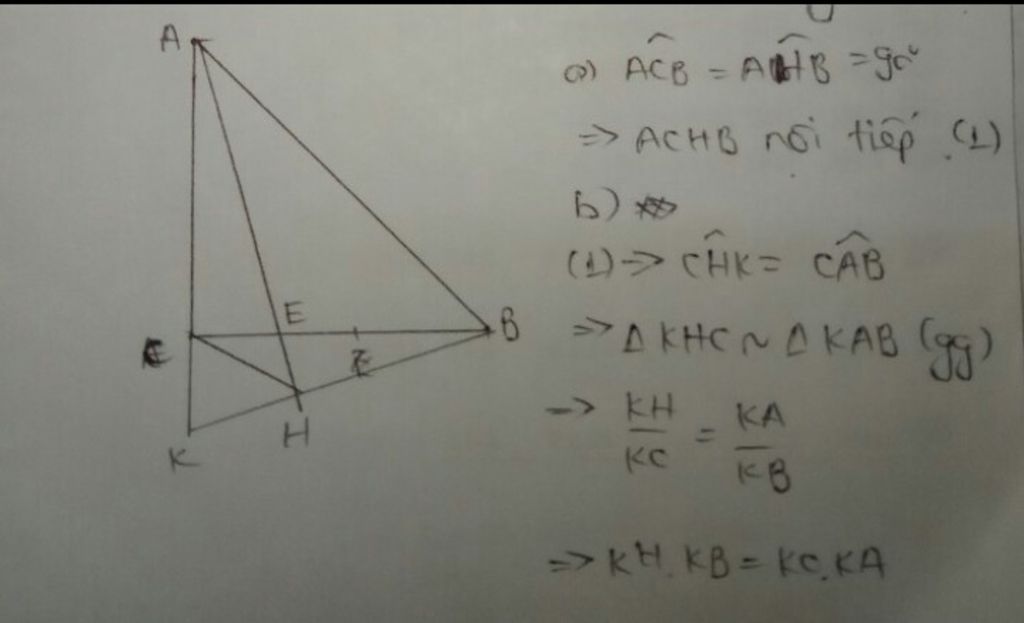 A
E
B
C
K
H
a) AĈB = AĤB = 90°
=> ACHB nội tiếp (1)
b)
(1) => CĤK = CÂB
=> Δ KHC ~ Δ KAB (gg)
-> KH/KC = KA/KB
=> KH.KB = KC.KA